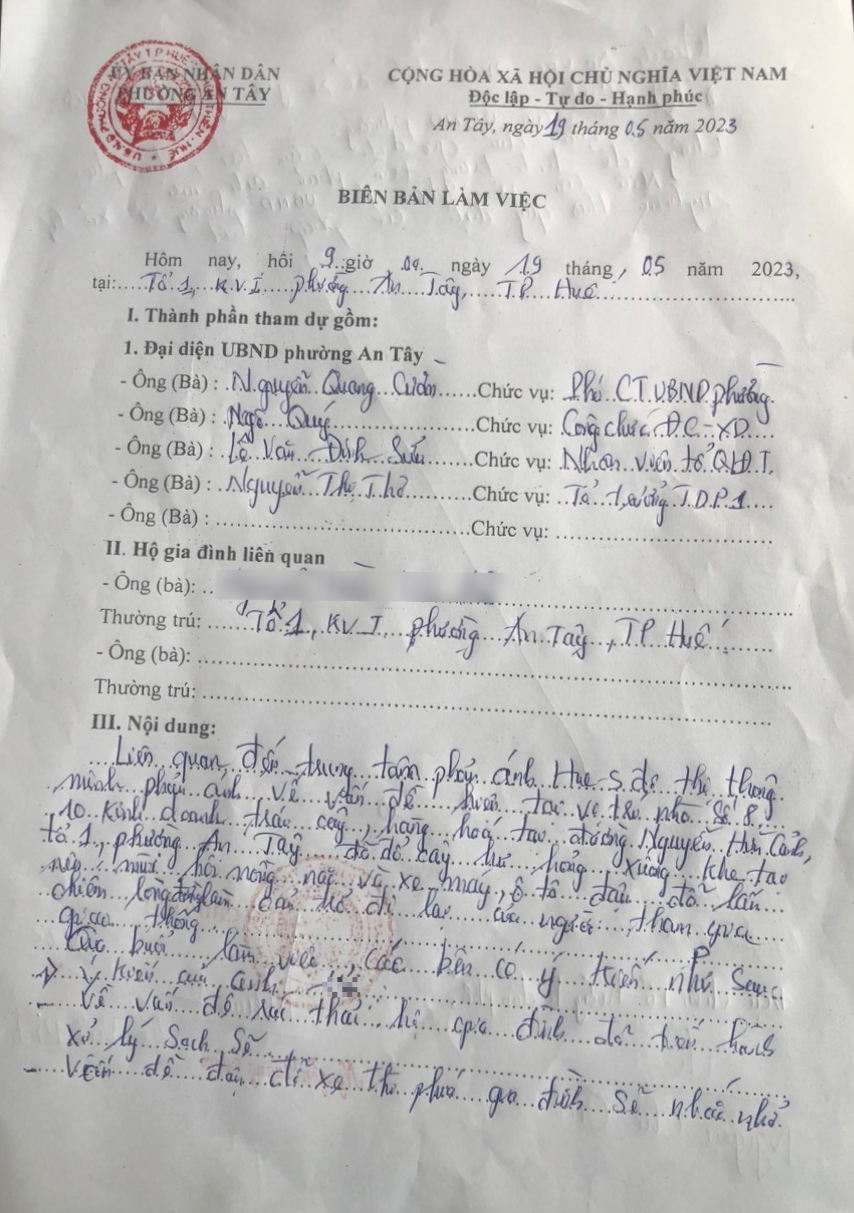 ỦY BAN NHÂN DÂN
PHƯỜNG AN TÂY
CỘNG HÒA XÃ HỘI CHỦ NGHĨA VIỆT NAM
Độc lập - Tự do - Hạnh phúc
An Tây, ngày 19 tháng 05 năm 2023
BIÊN BẢN LÀM VIỆC
Hôm nay, hồi 9 giờ 00 ngày 19 tháng 05 năm 2023,
tại: Tổ 1, K.V.I phường An Tây, T.P Huế
I. Thành phần tham dự gồm:
1. Đại diện UBND phường An Tây
- Ông (Bà) : Nguyễn Quang Cườn Chức vụ: Phó CT.UBND phường
- Ông (Bà) : Ngô Quý Chức vụ: Công chức ĐC-XD
- Ông (Bà) : Lê Văn Đình Sửu Chức vụ: Nhân viên tổ QLĐT
- Ông (Bà) : Nguyễn Thị Thơ Chức vụ: Tổ trưởng TDP1
- Ông (Bà) : Chức vụ:
II. Hộ gia đình liên quan
- Ông (bà):
Thường trú: Tổ 1, KV I, phường An Tây, TP Huế
- Ông (bà):
Thường trú:
III. Nội dung:
Liên quan đến trung tâm phản ánh Hue-S đô thị thông
minh phản ánh về vấn đề hiện tại vị trí nhà số 8
10 kinh doanh trái cây, hàng hoá tại đường Nguyễn Hữu Cảnh,
tổ 1, phường An Tây đổ trái cây hư hỏng xuống khe tạo
nên mùi hôi nồng nặc và xe máy, ô tô đậu đỗ lấn
chiếm lòng đường làm cản trở đi lại của người tham gia
giao thông
Qua buổi làm việc, các bên có ý kiến như sau:
1) Ý kiến của anh
- Về vấn đề rác thải hộ gia đình đã tiến hành
xử lý sạch sẽ
- Vấn đề đậu đỗ xe thì phía gia đình sẽ nhắc nhở